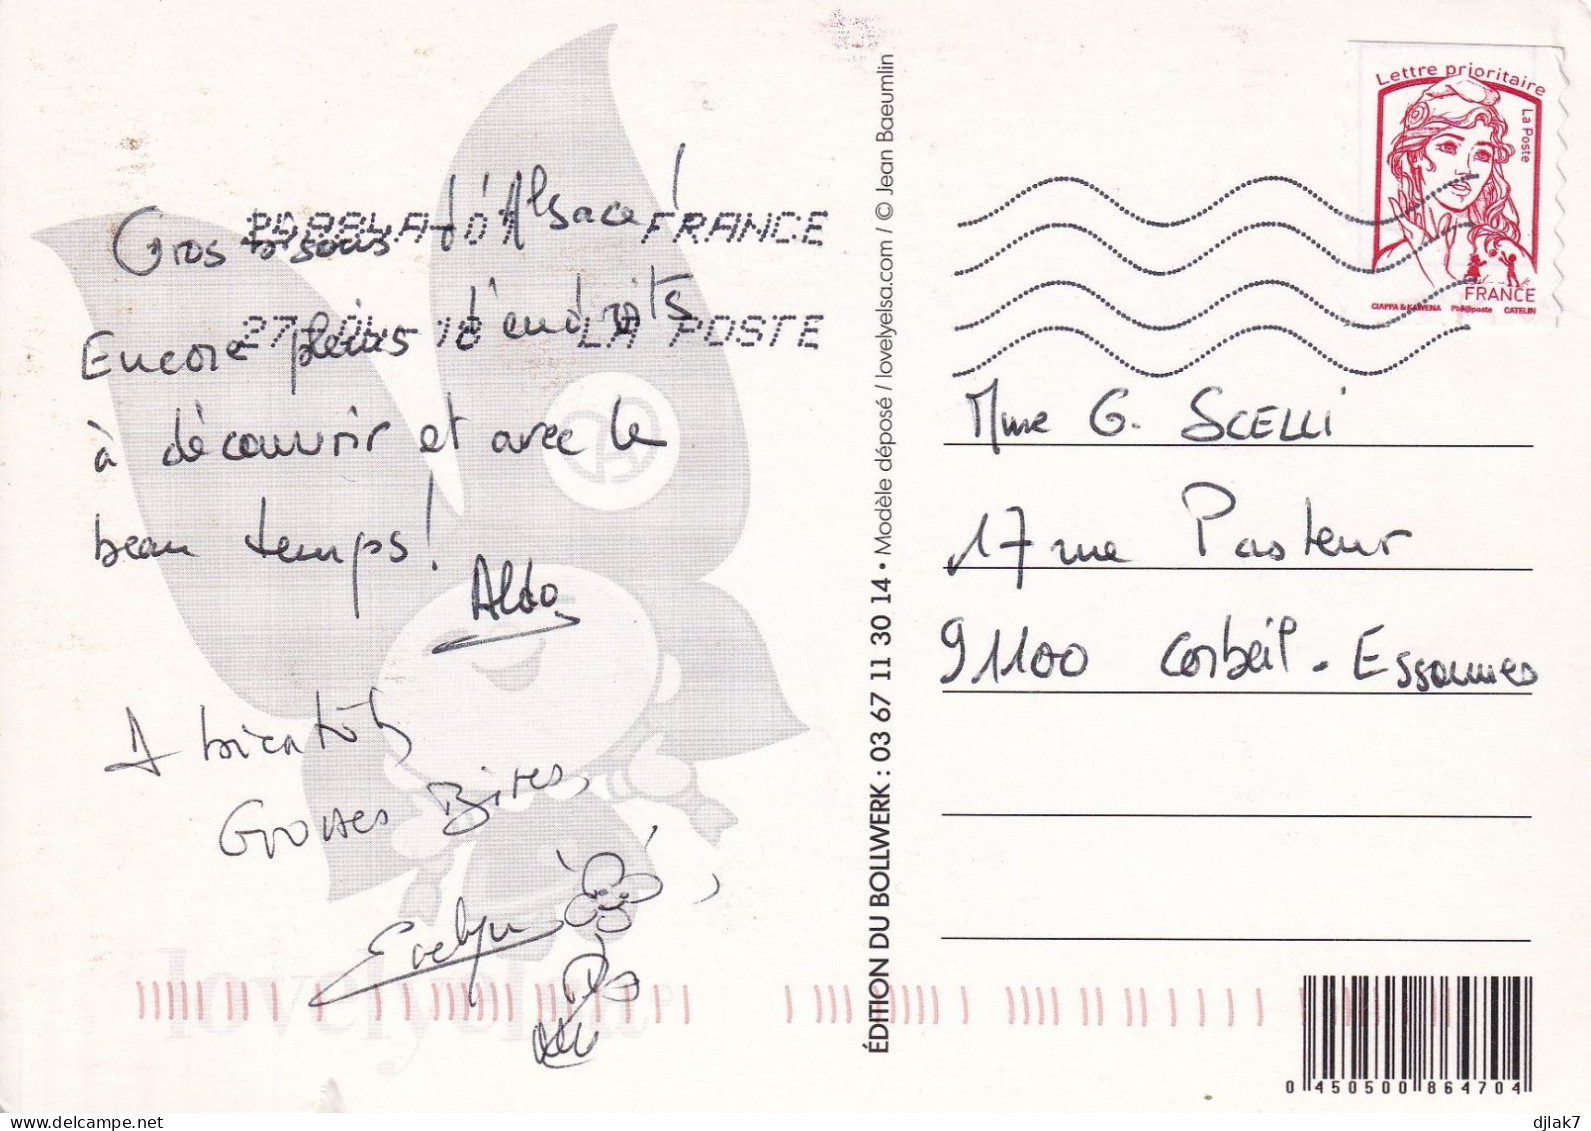 Gros bisous d'Alsace !
Encore pleins d'endroits
à découvrir et avec le
beau temps !
Aldo
A bientôt
Grosses Bises,
Evelyne
FRANCE
27 18 LA POSTE
lovelyelsa
ÉDITION DU BOLLWERK : 03 67 11 30 14 • Modèle déposé / lovelyelsa.com / © Jean Baeumlin
Lettre prioritaire
La Poste
FRANCE
CIAPPA & KAWENA Phil@poste CATELIN
Mme G. SCELLI
17 rue Pasteur
91100 Corbeil - Essonnes
0 450500 864704
djlak7